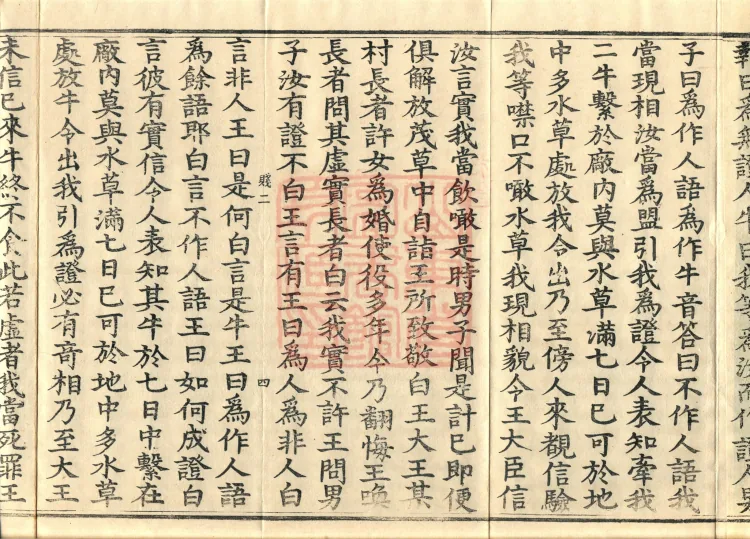 子曰為作人語為作牛音答曰不作人語我
當現相汝當為盟引我為證令人表知牽我
二牛繫於廠內莫與水草滿七日已可於地
中多水草處放我令出乃至傍人來覩信驗
我等噤口不噉水草我現相貌令王大臣信
汝言實我當飲噉是時男子聞是計已即便
俱解放茂草中自詣王所致敬白王大王某
村長者許女為婚使役多年今乃翻悔王喚
長者問其虛實長者白云我實不許王問男
子汝有證不白王言有王曰為人為非人白
賤二 四
言非人王曰是何白言是牛王曰為作人語
為餘語耶白言不作人語王曰如何成證白
言彼有實信令人表知其牛於七日中繫在
廠內莫與水草滿七日已可於地中多水草
處放牛令出我引為證必有奇相乃至大王
未信已來牛終不食此若虛者我當死罪王